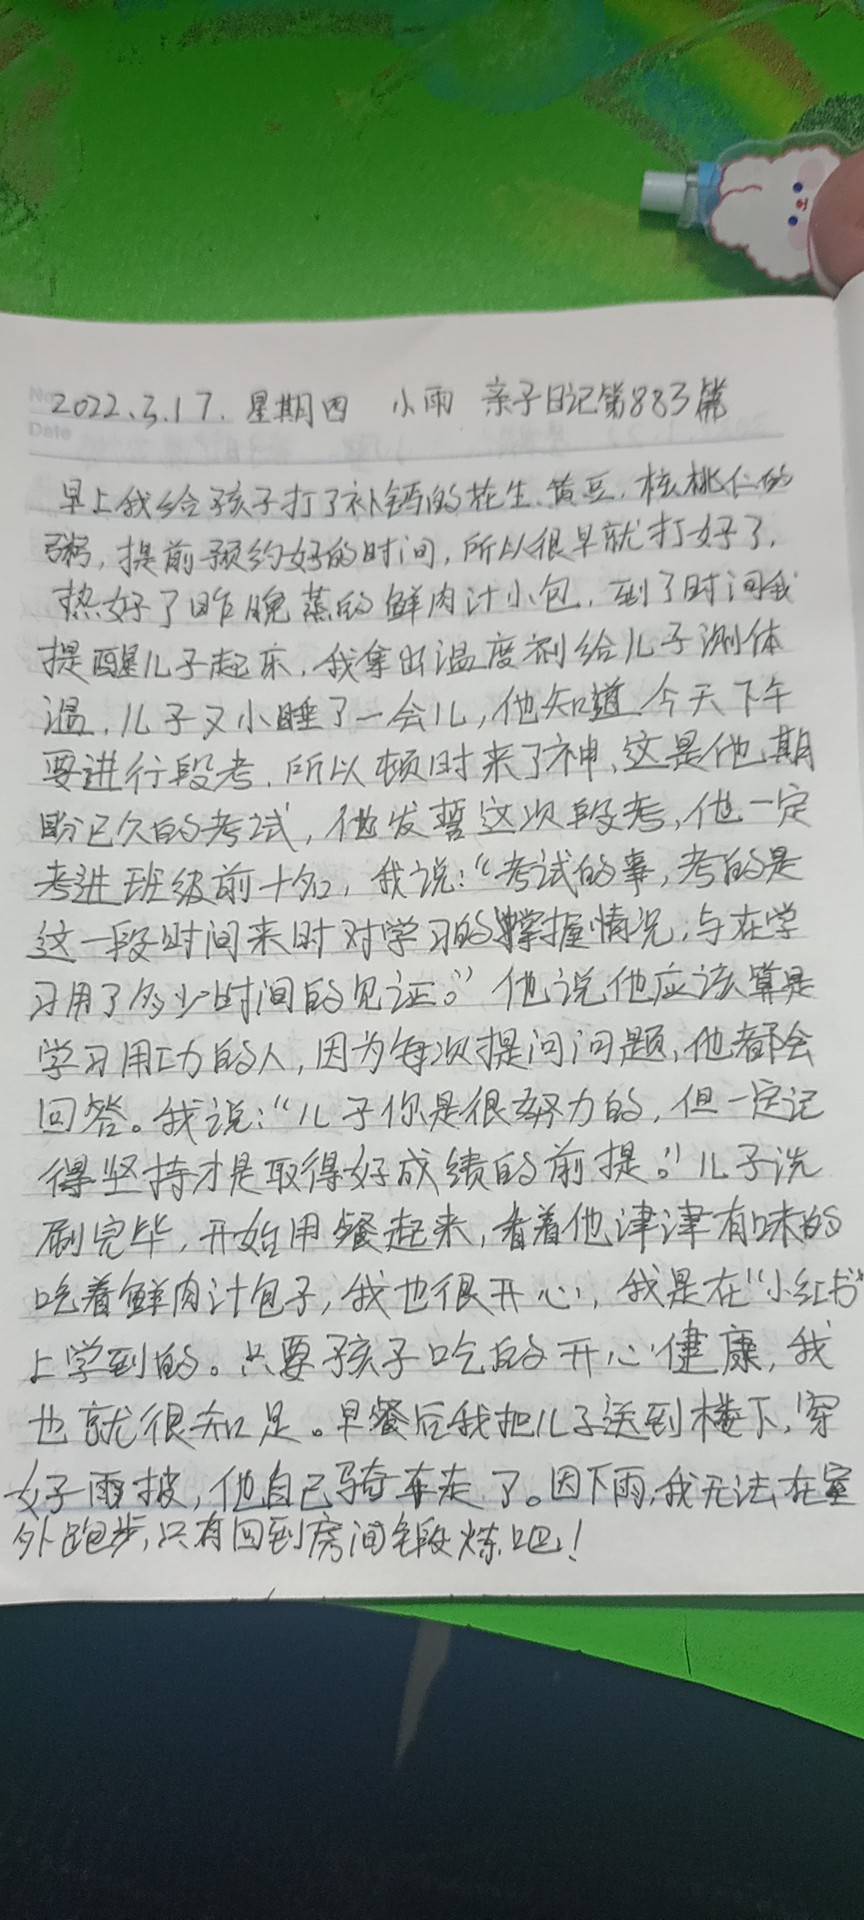 No
Date
2022.3.17. 星期四 小雨 亲子日记第883篇
早上我给孩子打了补钙的花生、黄豆、核桃仁的
粥,提前预约好的时间,所以很早就打好了,
热好了昨晚蒸的鲜肉汁小包,到了时间我
提醒儿子起床,我拿出温度剂给儿子测体
温,儿子又小睡了一会儿,他知道今天下午
要进行段考,所以顿时来了神,这是他期
盼已久的考试,他发誓这次段考,他一定
考进班级前十名,我说:“考试的事,考的是
这一段时间来时对学习的掌握情况,与在学
习用了多少时间的见证。”他说他应该算是
学习用功的人,因为每次提问问题,他都会
回答。我说:“儿子你是很努力的,但一定记
得坚持才是取得好成绩的前提。”儿子洗
刷完毕,开始用餐起来,看着他津津有味的
吃着鲜肉汁包子,我也很开心,我是在“小红书”
上学到的。只要孩子吃的开心健康,我
也就很知足。早餐后我把儿子送到楼下,穿
好雨披,他自己骑车走了。因下雨,我无法在室
外跑步,只有回到房间锻炼吧!